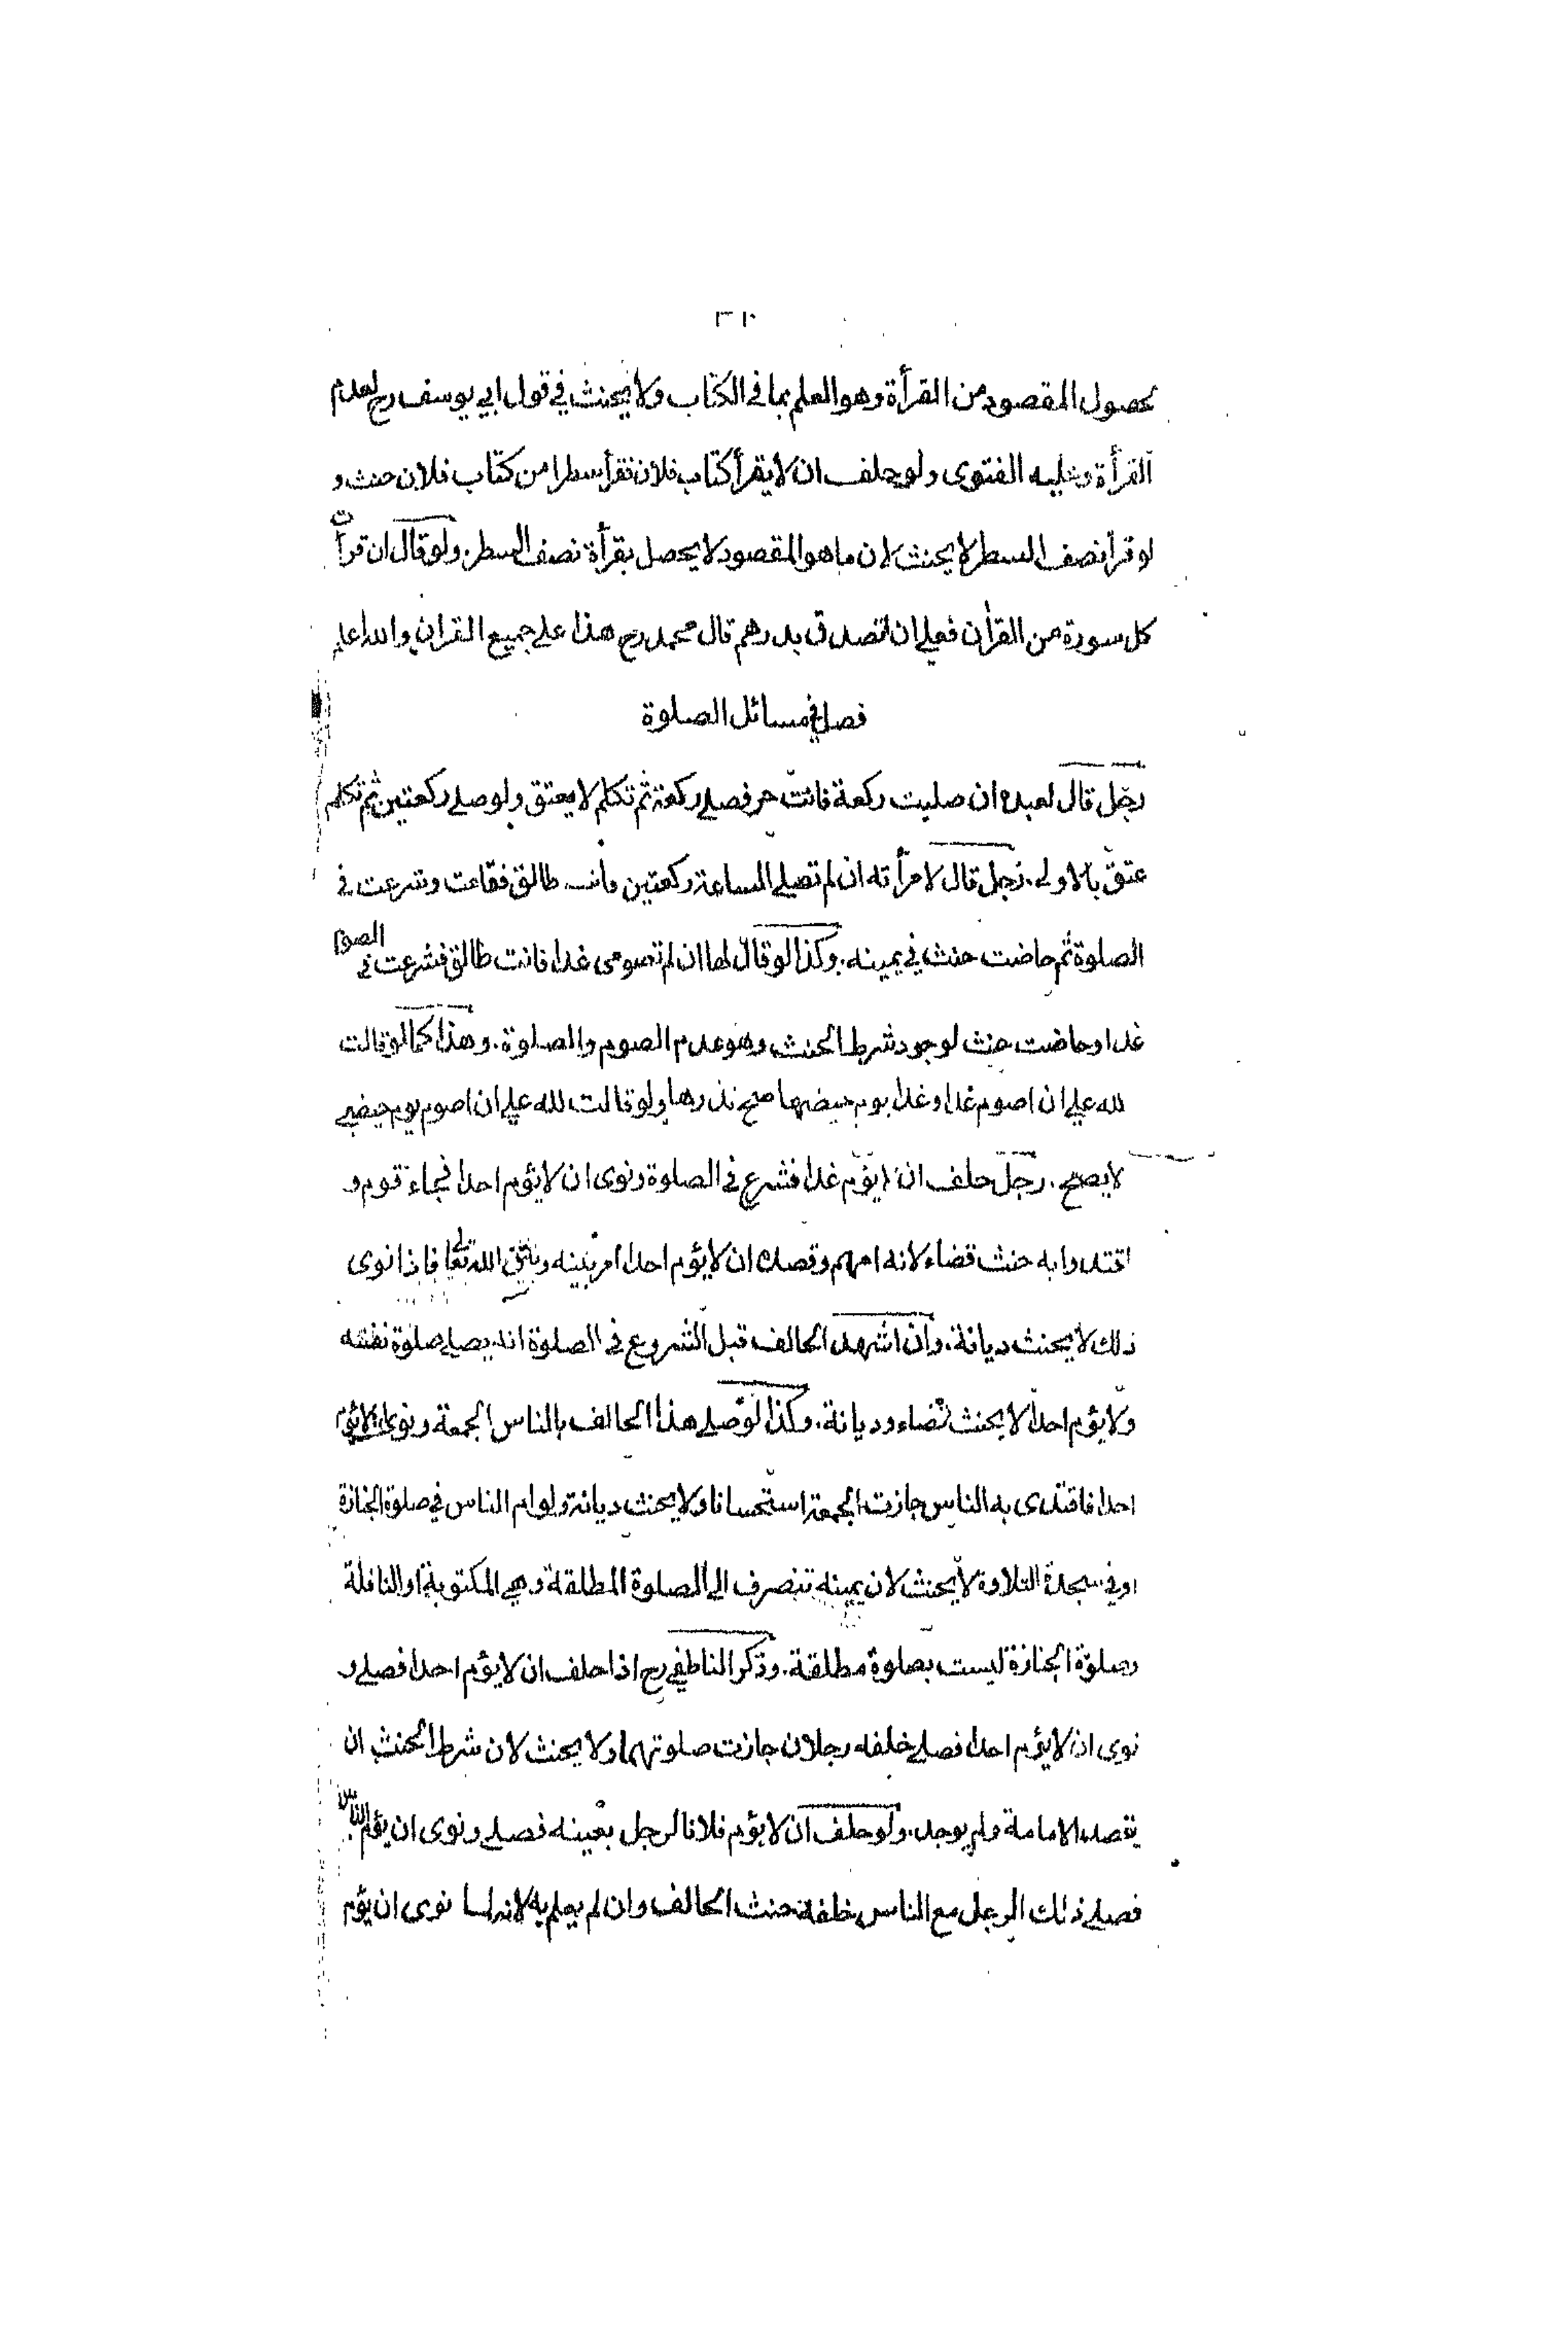 ٣١٠
لحصول المقصود من القرأة وهو العلم بما في الكتاب ولا يحنث في قول ابي يوسف رح لعدم
القرأة وعليه الفتوى ولو حلف ان لا يقرأ كتاب فلان فقرأ سطرا من كتاب فلان حنث و
لو قرأ نصف السطر لا يحنث لان ما هو المقصود لا يحصل بقرأة نصف السطر. ولو قال ان قرأت
كل سورة من القران فعلي ان اتصدق بدرهم قال محمد رح هذا على جميع القران والله اعلم
فصل في مسائل الصلوة
رجل قال لعبده ان صليت ركعة فانت حر فصلى ركعة ثم تكلم لا يعتق ولو صلى ركعتين ثم تكلم
عتق بالاولى. رجل قال لامرأته ان لم تصلي الساعة ركعتين فانت طالق فقامت وشرعت في
الصلوة ثم حاضت حنث في يمينه. وكذا لو قال لها ان لم تصومى غدا فانت طالق فشرعت في الصوم
غدا وحاضت حنث لوجود شرط الحنث وهو عدم الصوم والصلوة. وهذا كما لو قالت
لله علي ان اصوم غدا وغدا يوم حيضها صح نذرها ولو قالت لله علي ان اصوم يوم حيضي
لا يصح. رجل حلف ان لا يؤم غدا فشرع في الصلوة ونوى ان لا يؤم احدا فجاء قوم و
اقتدوا به حنث قضاء لانه امهم وقصده ان لا يؤم احدا امر بينه وبين الله تعالى فاذا نوى
ذلك لا يحنث ديانة. وان اشهد الحالف قبل الشروع في الصلوة انه يصلي صلوة نفسه
ولا يؤم احدا لا يحنث قضاء وديانة. وكذا لو صلى هذا الحالف بالناس الجمعة ونوى ان لا يؤم
احدا فاقتدى به الناس جازت الجمعة استحسانا ولا يحنث ديانة ولو ام الناس في صلوة الجنازة
او في سجدة التلاوة لا يحنث لان يمينه تنصرف الى الصلوة المطلقة وهي المكتوبة او النافلة
وصلوة الجنازة ليست بصلوة مطلقة. وذكر الناطفي رح اذا حلف ان لا يؤم احدا فصلى و
نوى ان لا يؤم احدا فصلى خلفه رجلان جازت صلوتهما ولا يحنث لان شرط الحنث ان
يقصد الامامة ولم يوجد. ولو حلف ان لا يؤم فلانا لرجل بعينه فصلى ونوى ان يؤم الناس
فصلى ذلك الرجل مع الناس خلفه حنث الحالف وان لم يعلم به لانه لما نوى ان يؤم